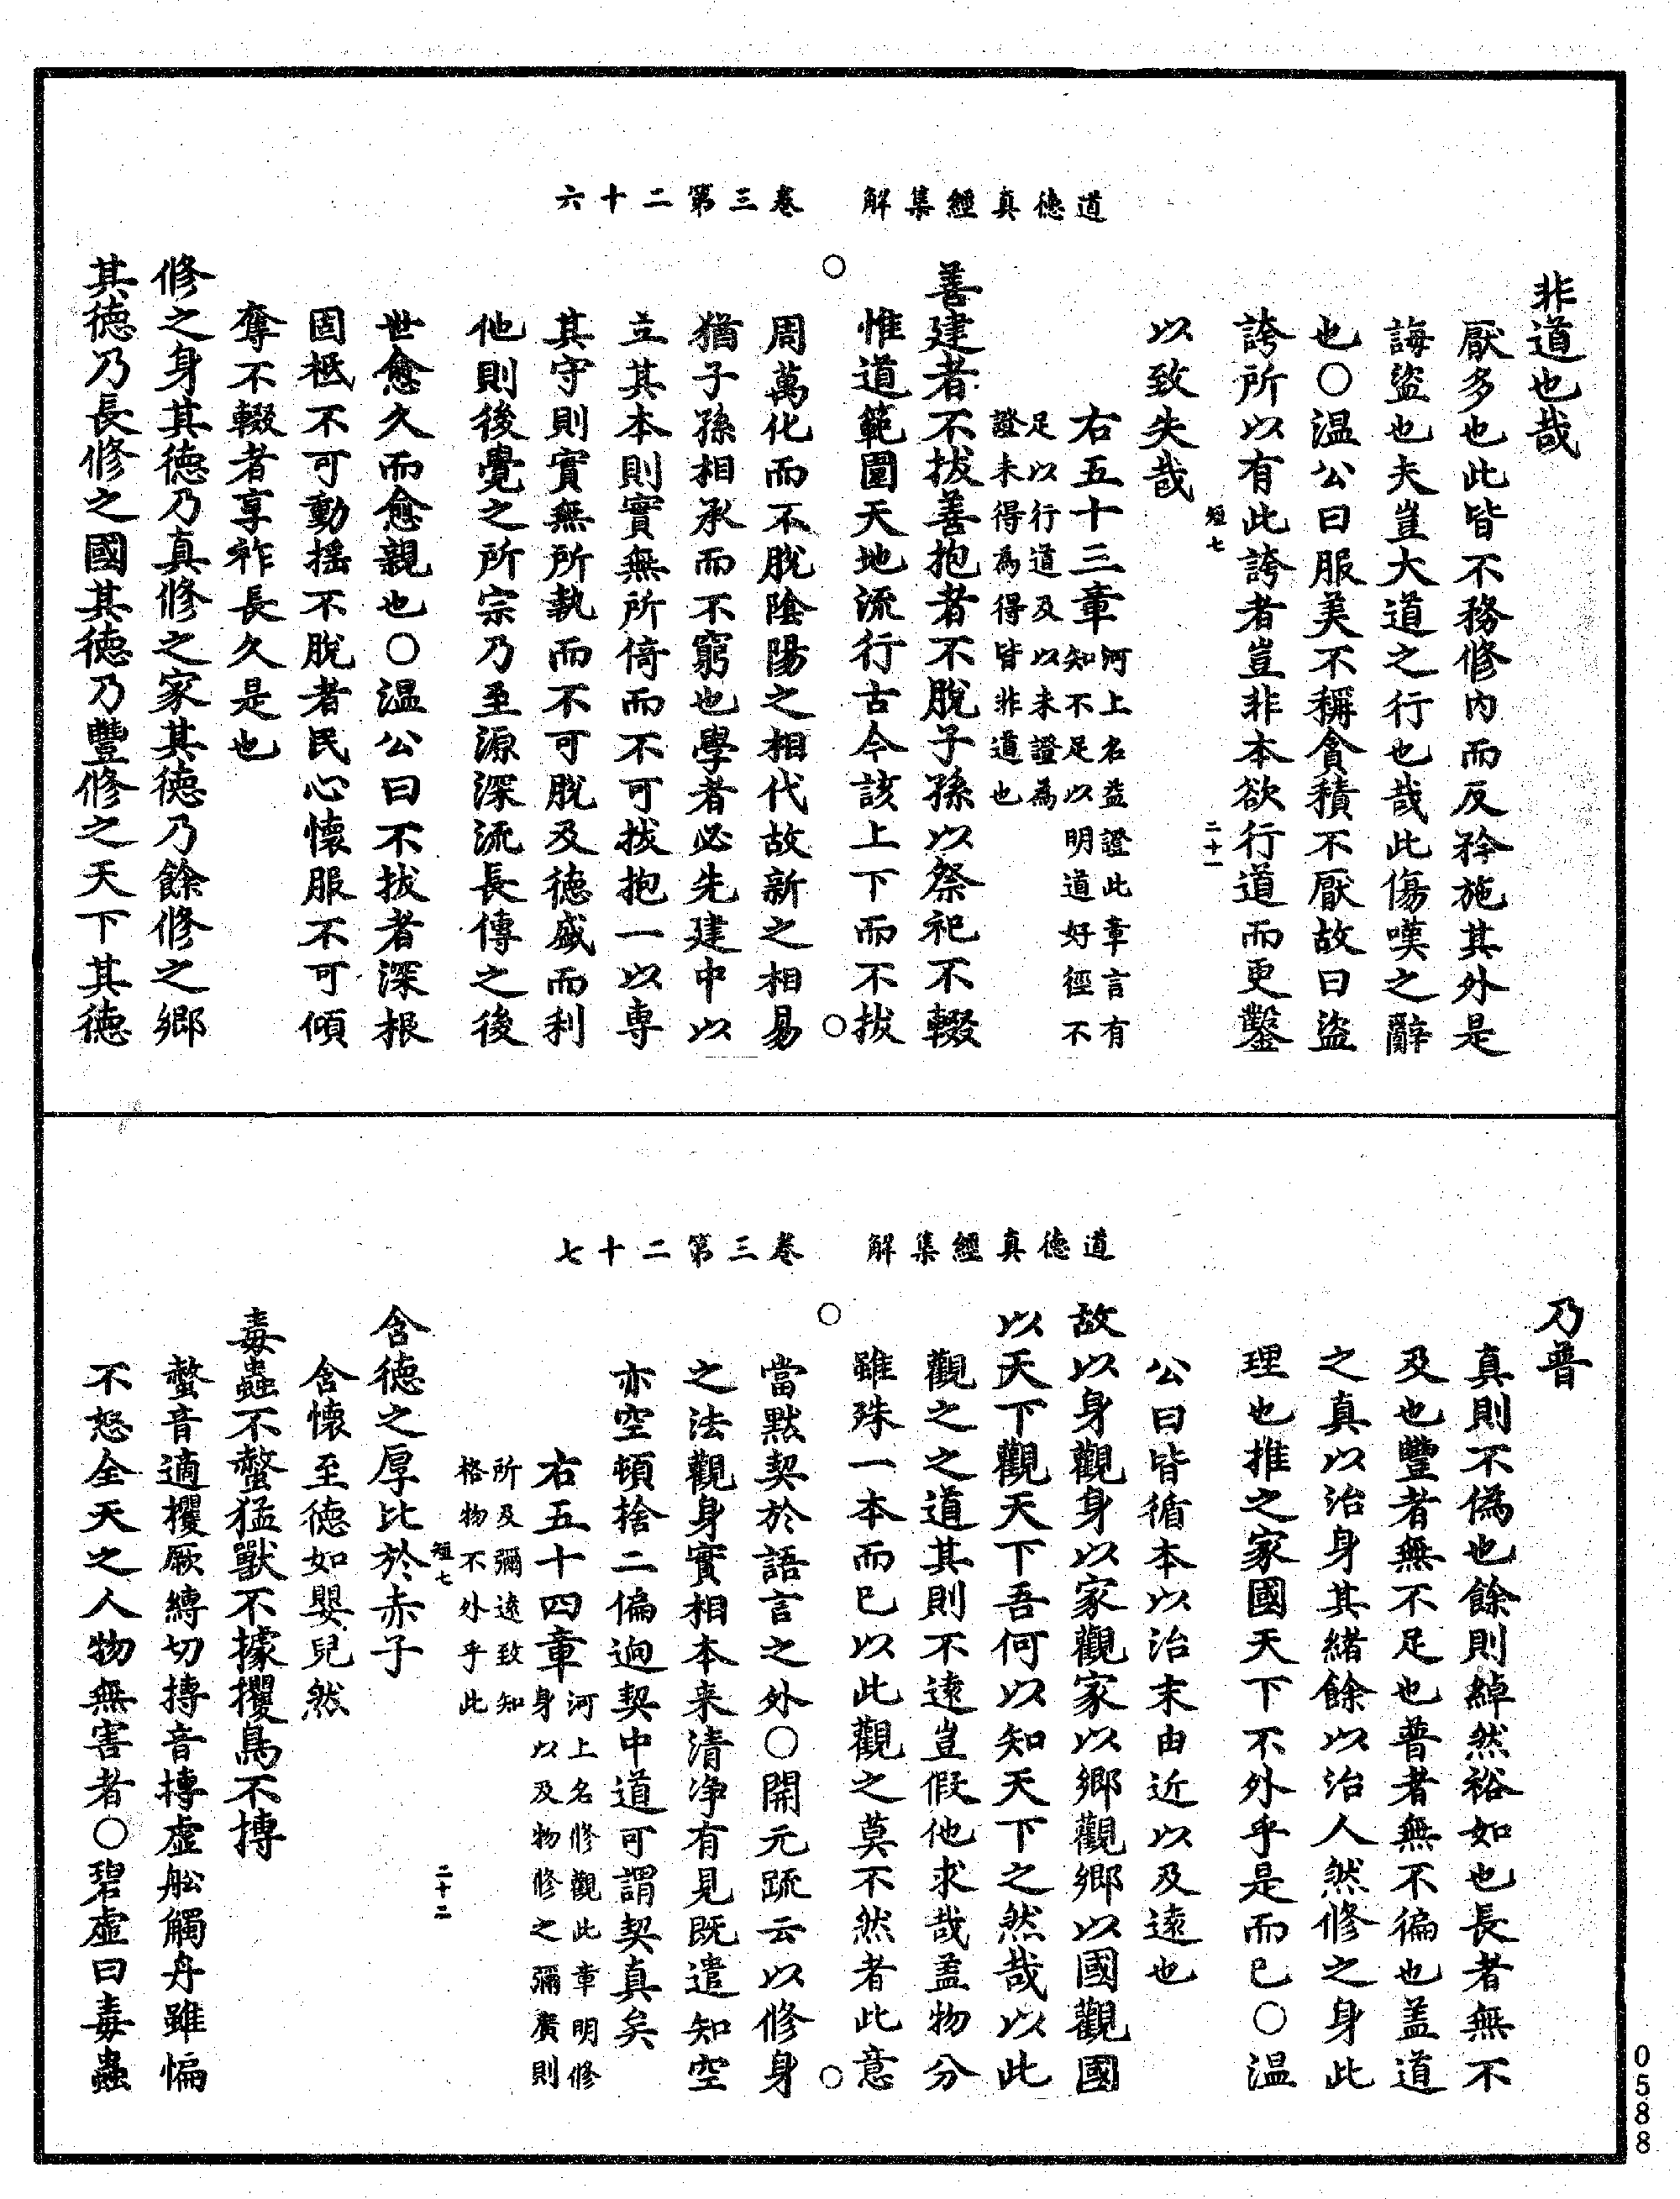 道德真經集解　卷三第二十六
非道也哉
厭多也此皆不務修內而反矜施其外是
誨盜也夫豈大道之行也哉此傷嘆之辭
也○温公曰服美不稱貪積不厭故曰盜
誇所以有此誇者豈非本欲行道而更鑿
短七　二十一
以致失哉
右五十三章河上名益證此章言有
知不足以明道好徑不
足以行道及以未證為
證未得為得皆非道也
善建者不拔善抱者不脫子孫以祭祀不輟
惟道範圍天地流行古今該上下而不拔
周萬化而不脫陰陽之相代故新之相易
猶子孫相承而不窮也學者必先建中以
立其本則實無所倚而不可拔抱一以專
其守則實無所執而不可脫及德盛而利
他則後覺之所宗乃至源深流長傳之後
世愈久而愈親也○温公曰不拔者深根
固柢不可動揺不脫者民心懷服不可傾
奪不輟者享祚長久是也
修之身其德乃真修之家其德乃餘修之鄉
其德乃長修之國其德乃豐修之天下其德
道德真經集解　卷三第二十七
乃普
真則不偽也餘則綽然裕如也長者無不
及也豐者無不足也普者無不徧也盖道
之真以治身其緒餘以治人然修之身此
理也推之家國天下不外乎是而已○温
公曰皆循本以治末由近以及遠也
故以身觀身以家觀家以鄉觀鄉以國觀國
以天下觀天下吾何以知天下之然哉以此
觀之之道其則不遠豈假他求哉盖物分
雖殊一本而已以此觀之莫不然者此意
當默契於語言之外○開元疏云以修身
之法觀身實相本来清净有見既遣知空
亦空頓捨二偏逈契中道可謂契真矣
右五十四章河上名修觀此章明修
身以及物修之彌廣則
所及彌遠致知
格物不外乎此
短七　二十二
含德之厚比於赤子
含懷至德如嬰兒然
毒蟲不螫猛獸不據攫鳥不摶
螫音適攫厥縛切摶音摶虚舩觸舟雖惼
不怒全天之人物無害者○碧虚曰毒蟲
0588